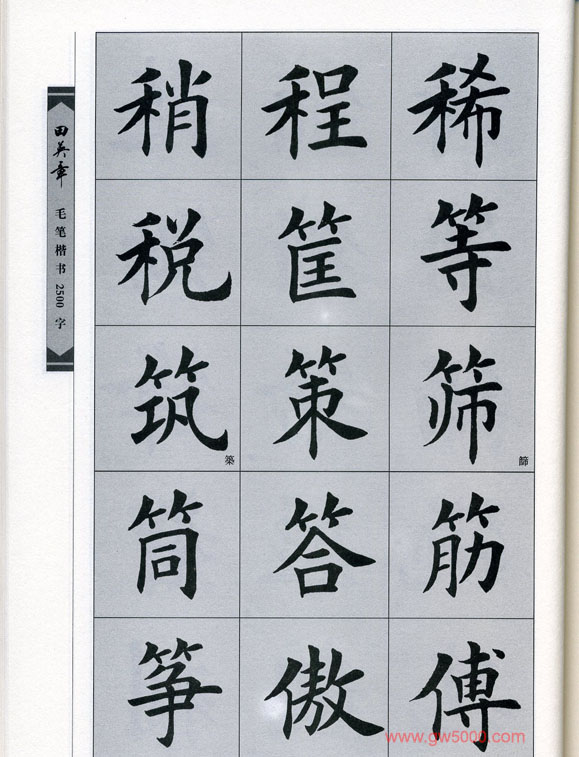 田英章
毛笔楷书2500字
稍程稀
税筐等
筑築策筛篩
筒答筋
筝傲傅
www.gw5000.com